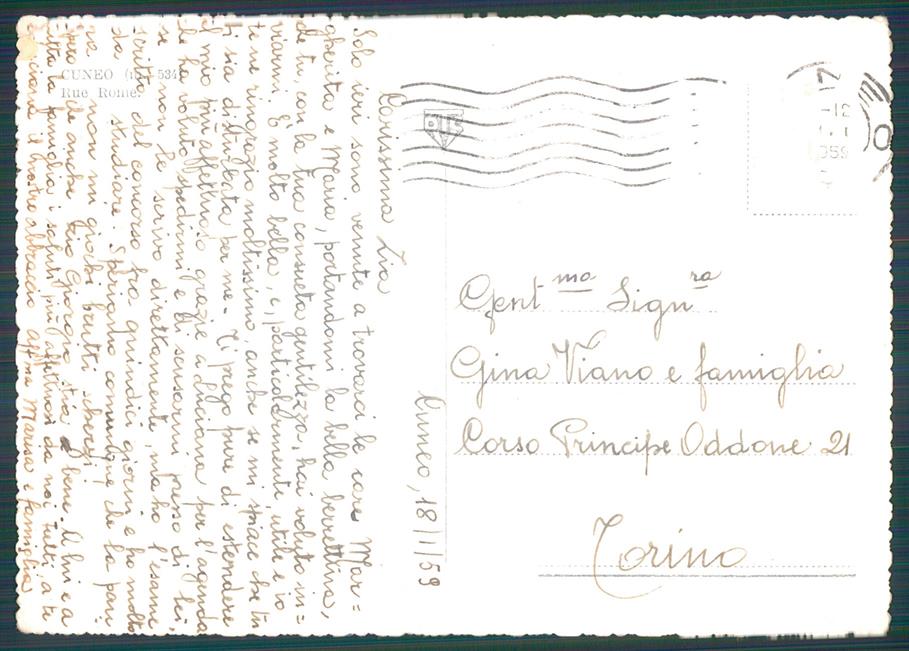 CUNEO (m. 534)
Rue Rome.
Cuneo, 18/1/59
Carissima Zia
Solo ieri sono venute a trovarci le care Mar=
gherita e Maria, portandomi la bella berrettina,
che tu, con la tua consueta gentilezza, hai voluto in=
viarmi. E' molto bella, e, particolarmente, utile e io
te ne ringrazio moltissimo, anche se mi spiace che tu
ti sia disturbata per me. Ti prego pure di estendere
il mio più affettuoso grazie a Luciana per l'agenda
che ha voluto spedirmi e di scusarmi presso di lei
se non le scrivo direttamente, ma ho l'esame
scritto del concorso fra quindici giorni e ho molto
da studiare. Speriamo comunque che la pau
ra non mi giochi brutti scherzi!
che anche zio Giorgio stia bene. A lui e a
tutta la famiglia i saluti più affettuosi da noi tutti, a te
e Luciana il nostro abbraccio aff.ma Marisa e famiglia
Gent.ma Sign.ra
Gina Viano e famiglia
Corso Principe Oddone 21
Torino